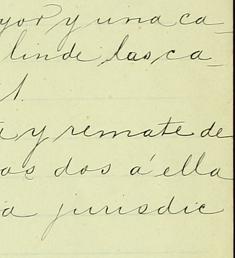 yor y una ca
linde las ca
1.
y remate de
os dos á ella
a jurisdic